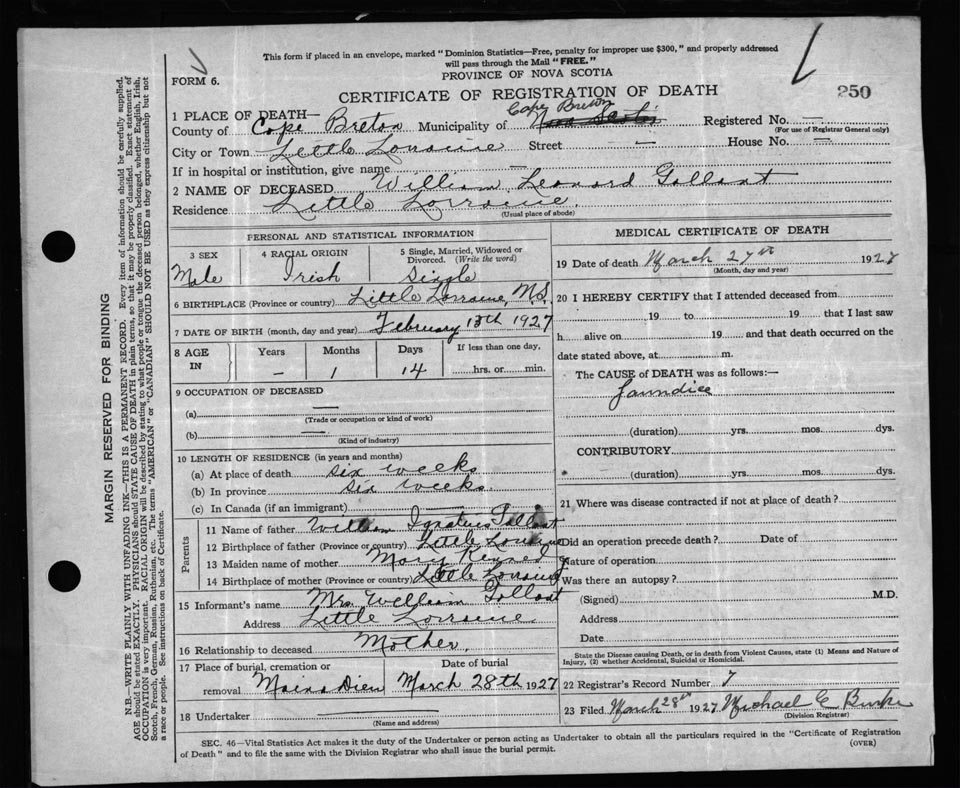 This form if placed in an envelope, marked "Dominion Statistics—Free, penalty for improper use $300," and properly addressed
will pass through the Mail "FREE."
FORM 6.
PROVINCE OF NOVA SCOTIA
CERTIFICATE OF REGISTRATION OF DEATH
250
1 PLACE OF DEATH—
Cape Breton
County of Cape Breton Municipality of Nova Scotia Registered No. —
(For use of Registrar General only)
City or Town Little Lorraine Street — House No. —
If in hospital or institution, give name —
2 NAME OF DECEASED William Leonard Gallant
Residence Little Lorraine.
(Usual place of abode)
PERSONAL AND STATISTICAL INFORMATION
3 SEX 4 RACIAL ORIGIN 5 Single, Married, Widowed or
Divorced. (Write the word)
Male Irish Single
6 BIRTHPLACE (Province or country) Little Lorraine, N.S.
7 DATE OF BIRTH (month, day and year) February 13th 1927
8 AGE IN Years Months Days If less than one day,
– 1 14 hrs. or min.
9 OCCUPATION OF DECEASED
(a) —
(Trade or occupation or kind of work)
(b) —
(Kind of industry)
10 LENGTH OF RESIDENCE (in years and months)
(a) At place of death six weeks
(b) In province six weeks.
(c) In Canada (if an immigrant) —
Parents
11 Name of father William Ignatius Gallant
12 Birthplace of father (Province or country) Little Lorraine
13 Maiden name of mother Mary Kennedy
14 Birthplace of mother (Province or country) Little Lorraine
15 Informant's name Mrs William Gallant
Address Little Lorraine.
16 Relationship to deceased Mother.
17 Place of burial, cremation or Date of burial
removal Main a Dieu March 28th 1927
18 Undertaker
(Name and address)
MEDICAL CERTIFICATE OF DEATH
19 Date of death March 27th 1927
(Month, day and year)
20 I HEREBY CERTIFY that I attended deceased from
19 to 19 that I last saw
h alive on 19 and that death occurred on the
date stated above, at m.
The CAUSE of DEATH was as follows:—
Jaundice
(duration) yrs. mos. dys.
CONTRIBUTORY
(duration) yrs. mos. dys.
21 Where was disease contracted if not at place of death?
Did an operation precede death? Date of
Nature of operation
Was there an autopsy?
(Signed) M.D.
Address
Date
State the Disease causing Death, or in death from Violent Causes, state (1) Means and Nature of
Injury, (2) whether Accidental, Suicidal or Homicidal.
22 Registrar's Record Number 7
23 Filed March 28th 1927 Michael C Burke
(Division Registrar)
SEC. 46—Vital Statistics Act makes it the duty of the Undertaker or person acting as Undertaker to obtain all the particulars required in the "Certificate of Registration
of Death" and to file the same with the Division Registrar who shall issue the burial permit.
(OVER)
MARGIN RESERVED FOR BINDING
N.B.—WRITE PLAINLY WITH UNFADING INK—THIS IS A PERMANENT RECORD. Every item of information should be carefully supplied.
AGE should be stated EXACTLY. PHYSICIANS should STATE CAUSE OF DEATH in plain terms, so that it may be properly classified. Exact statement of
OCCUPATION is very important. RACIAL ORIGIN will be described by stating to what people or tongue the deceased person belonged, whether English, Irish,
Scotch, French, German, Russian, Ruthenian, etc. The terms "AMERICAN" or "CANADIAN" SHOULD NOT BE USED as they express citizenship but not
a race or people. See instructions on back of Certificate.